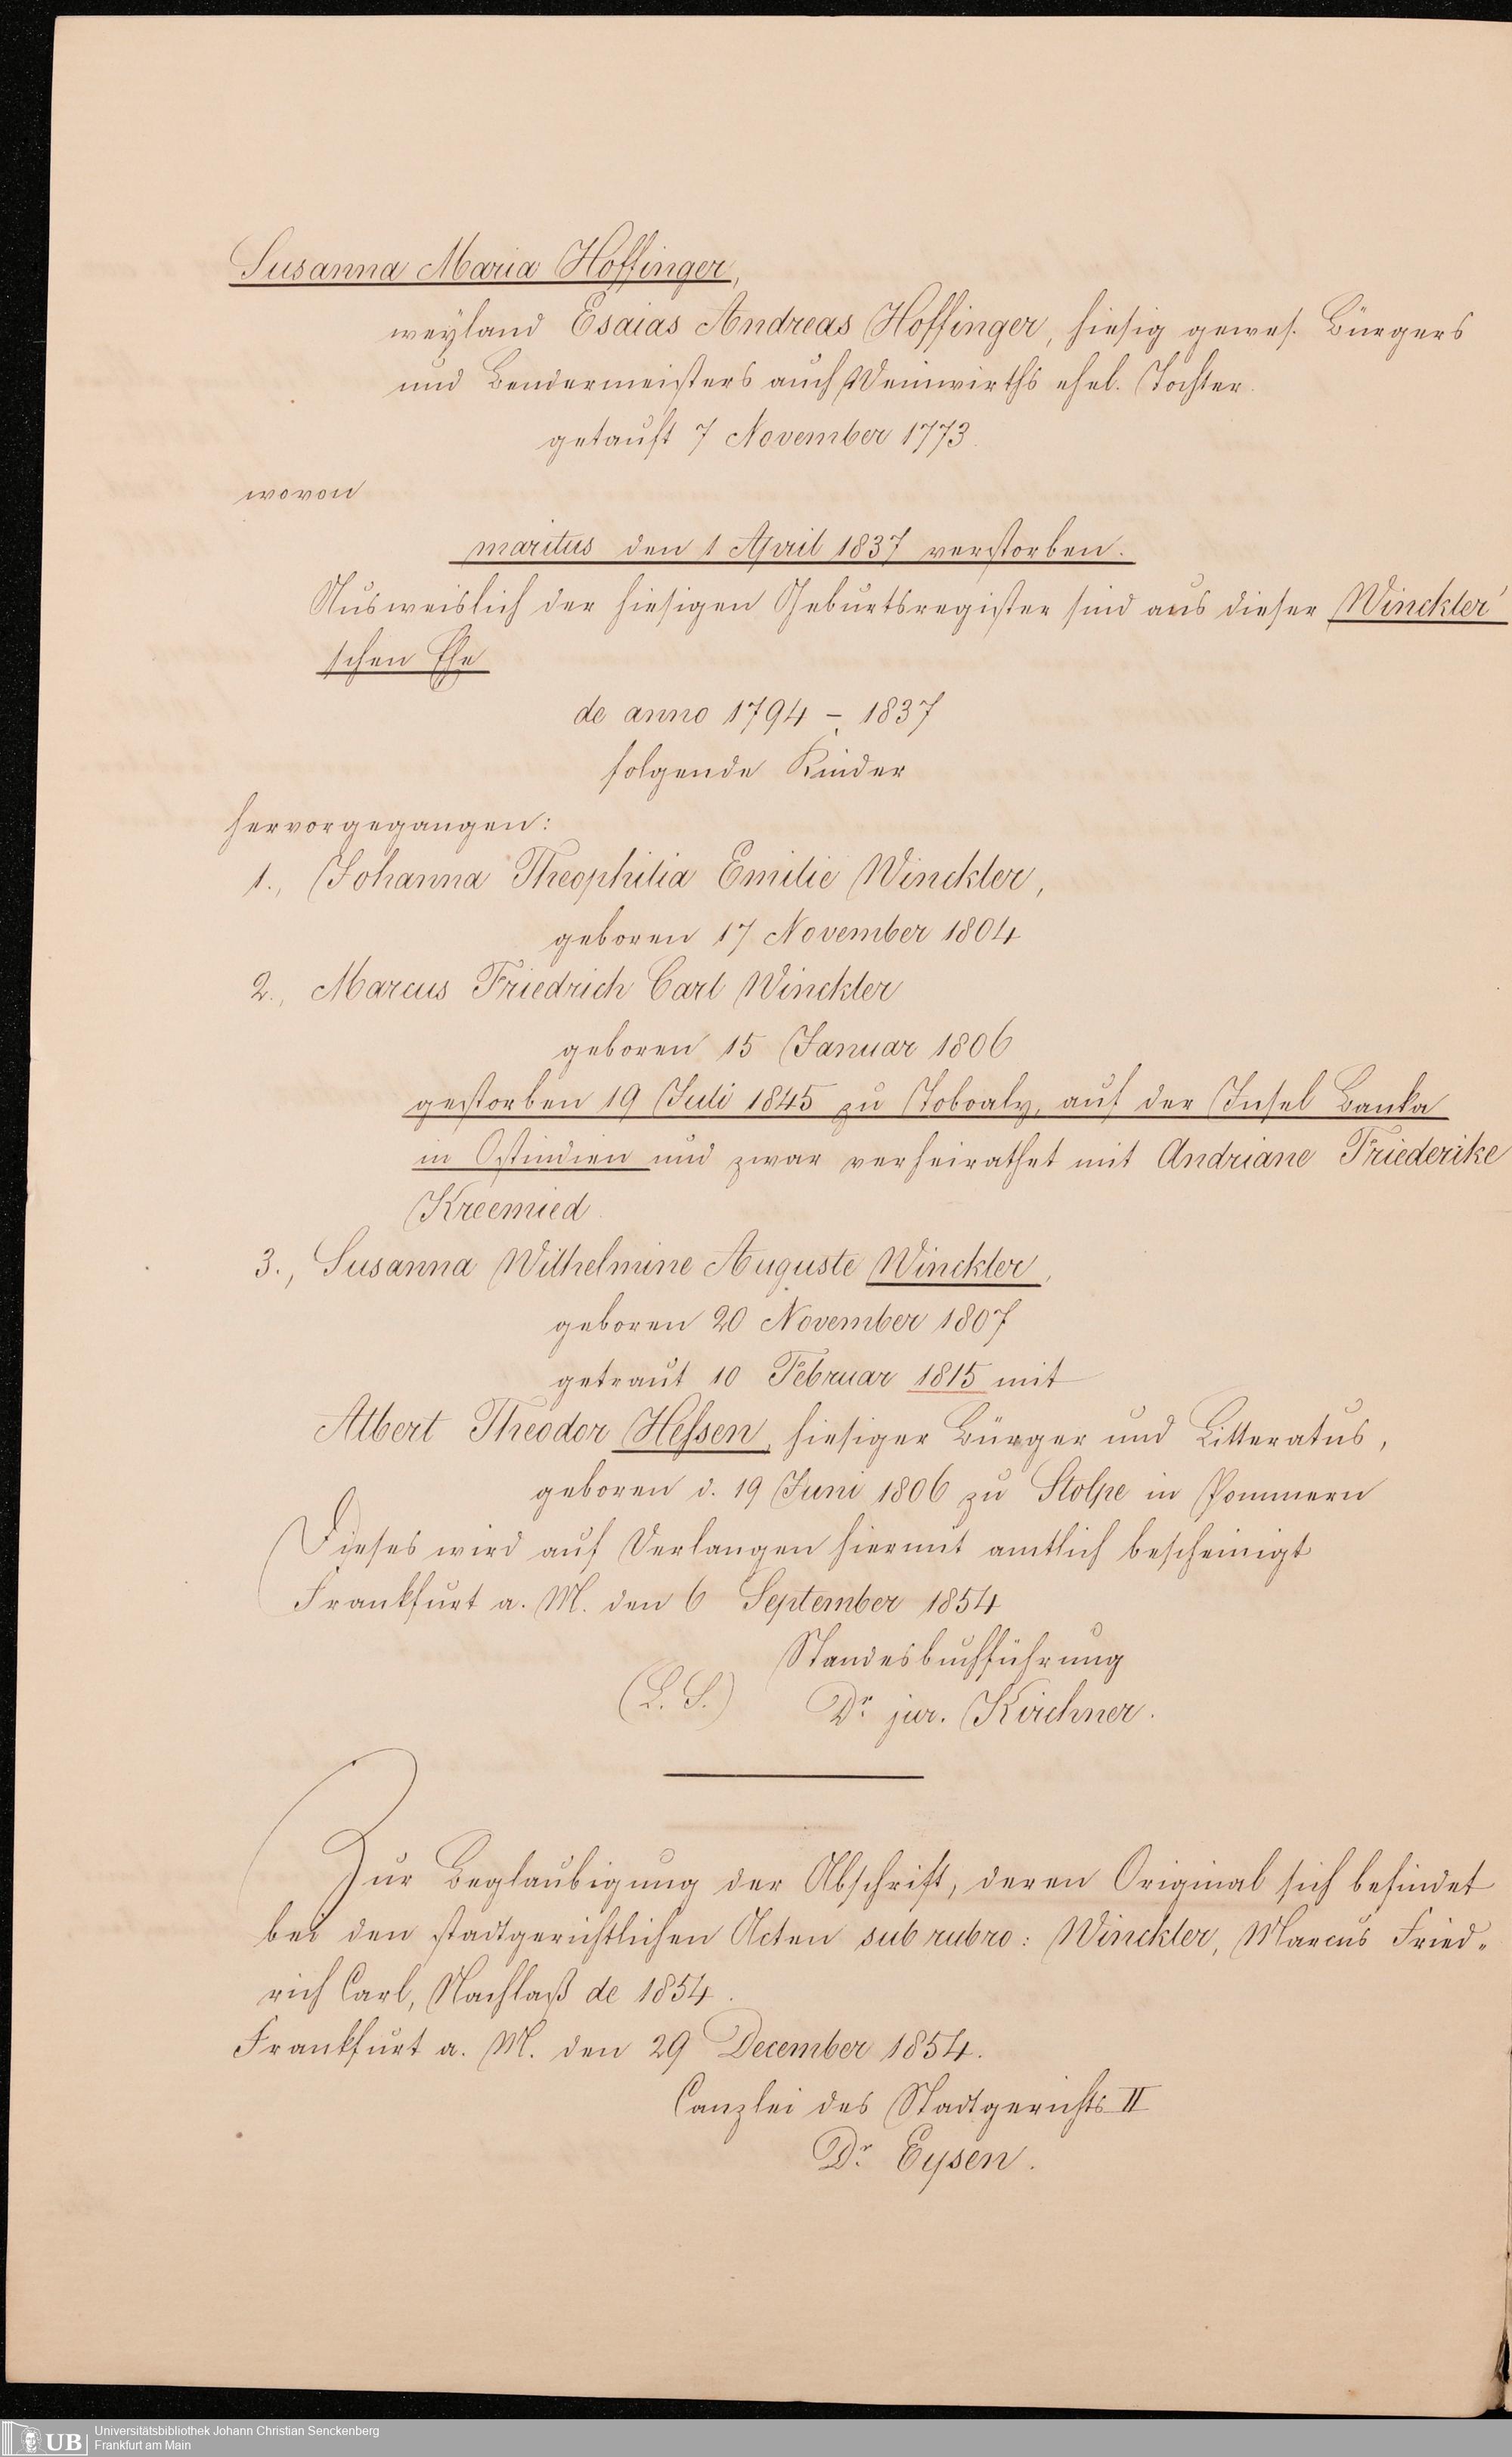 Susanna Maria Hoffinger,
weyland Esaias Andreas Hoffinger, hiesig gewes. Bürgers
und Bendermeisters auch Weinwirths ehel. Tochter.
getauft 7 November 1773.
wovon
maritus den 1 April 1837 verstorben.
Ausweislich der hiesigen Geburtsregister sind aus dieser Winckler'
schen Ehe
de anno 1794 – 1837
folgende Kinder
hervorgegangen:
1., Johanna Theophilia Emilie Winckler,
geboren 17 November 1804
2., Marcus Friedrich Carl Winckler
geboren 15 Januar 1806
gestorben 19 Juli 1845 zu Toboaly, auf der Insel Banka
in Ostindien und zwar verheirathet mit Andriane Friederike
Kreemied.
3., Susanna Wilhelmine Auguste Winckler,
geboren 20 November 1807
getraut 10 Februar 1815 mit
Albert Theodor Hessen, hiesiger Bürger und Litteratus,
geboren d. 19 Juni 1806 zu Stolpe in Pommern
Dieses wird auf Verlangen hiermit amtlich bescheinigt
Frankfurt a. M. den 6 September 1854
Standesbuchführung
(L. S.) Dr jur. Kirchner.
Zur Beglaubigung der Abschrift, deren Original sich befindet
bei den stadtgerichtlichen Acten sub rubro: Winckler, Marcus Fried-
rich Carl, Nachlaß de 1854.
Frankfurt a. M. den 29 December 1854.
Canzlei des Stadtgerichts II
Dr Eysen.
UB Universitätsbibliothek Johann Christian Senckenberg
Frankfurt am Main